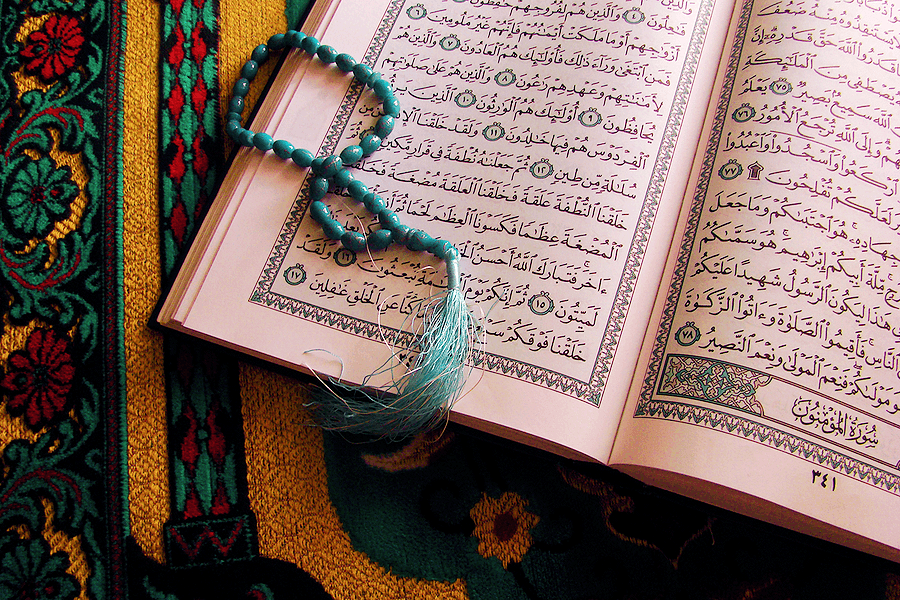 يَسْتَنقِذُوهُ مِنْهُ ضَعُفَ
قَدَرُوا۟ ٱللَّهَ حَقَّ قَدْرِهِۦٓ إِنَّ
يَصْطَفِى مِنَ ٱلْمَلَـٰٓئِكَةِ
ٱللَّهَ سَمِيعٌۢ بَصِيرٌ ٧٥ يَعْلَمُ
خَلْفَهُمْ وَإِلَى ٱللَّهِ تُرْجَعُ ٱلْأُمُورُ ٧٦
ٱرْكَعُوا۟ وَٱسْجُدُوا۟ وَٱعْبُدُوا۟
لَعَلَّكُمْ تُفْلِحُونَ ۩ ٧٧
جِهَادِهِۦ هُوَ ٱجْتَبَىٰكُمْ وَمَا جَعَلَ
مِّلَّةَ أَبِيكُمْ إِبْرَٰهِيمَ هُوَ سَمَّىٰكُمُ
هَـٰذَا لِيَكُونَ ٱلرَّسُولُ شَهِيدًا عَلَيْكُمْ
ٱلنَّاسِ فَأَقِيمُوا۟ ٱلصَّلَوٰةَ وَءَاتُوا۟ ٱلزَّكَوٰةَ
هُوَ مَوْلَىٰكُمْ فَنِعْمَ ٱلْمَوْلَىٰ وَنِعْمَ ٱلنَّصِيرُ ٧٨
سُورَةُ المُؤْمِنُونَ
٣٤١
فَـٰعِلُونَ ٤ وَٱلَّذِينَ هُمْ لِفُرُوجِهِمْ حَـٰفِظُونَ ٥
أَزْوَٰجِهِمْ أَوْ مَا مَلَكَتْ أَيْمَـٰنُهُمْ فَإِنَّهُمْ غَيْرُ مَلُومِينَ ٦
فَمَنِ ٱبْتَغَىٰ وَرَآءَ ذَٰلِكَ فَأُو۟لَـٰٓئِكَ هُمُ ٱلْعَادُونَ ٧ وَٱلَّذِينَ هُمْ
لِأَمَـٰنَـٰتِهِمْ وَعَهْدِهِمْ رَٰعُونَ ٨ وَٱلَّذِينَ هُمْ عَلَىٰ صَلَوَٰتِهِمْ
يُحَافِظُونَ ٩ أُو۟لَـٰٓئِكَ هُمُ ٱلْوَٰرِثُونَ ١٠ ٱلَّذِينَ يَرِثُونَ
ٱلْفِرْدَوْسَ هُمْ فِيهَا خَـٰلِدُونَ ١١ وَلَقَدْ خَلَقْنَا ٱلْإِنسَـٰنَ مِن
سُلَـٰلَةٍ مِّن طِينٍ ١٢ ثُمَّ جَعَلْنَـٰهُ نُطْفَةً فِى قَرَارٍ مَّكِينٍ
خَلَقْنَا ٱلنُّطْفَةَ عَلَقَةً فَخَلَقْنَا ٱلْعَلَقَةَ مُضْغَةً فَخَلَقْنَا
ٱلْمُضْغَةَ عِظَـٰمًا فَكَسَوْنَا ٱلْعِظَـٰمَ لَحْمًا ثُمَّ أَنشَأْنَـٰهُ
ءَاخَرَ فَتَبَارَكَ ٱللَّهُ أَحْسَنُ ٱلْخَـٰلِقِينَ
لَمَيِّتُونَ ١٥ ثُمَّ إِنَّكُمْ يَوْمَ ٱلْقِيَـٰمَةِ تُبْعَثُونَ ١٦ وَلَقَدْ
خَلَقْنَا فَوْقَكُمْ سَبْعَ كُنَّا عَنِ ٱلْخَلْقِ غَـٰفِلِينَ ١٧